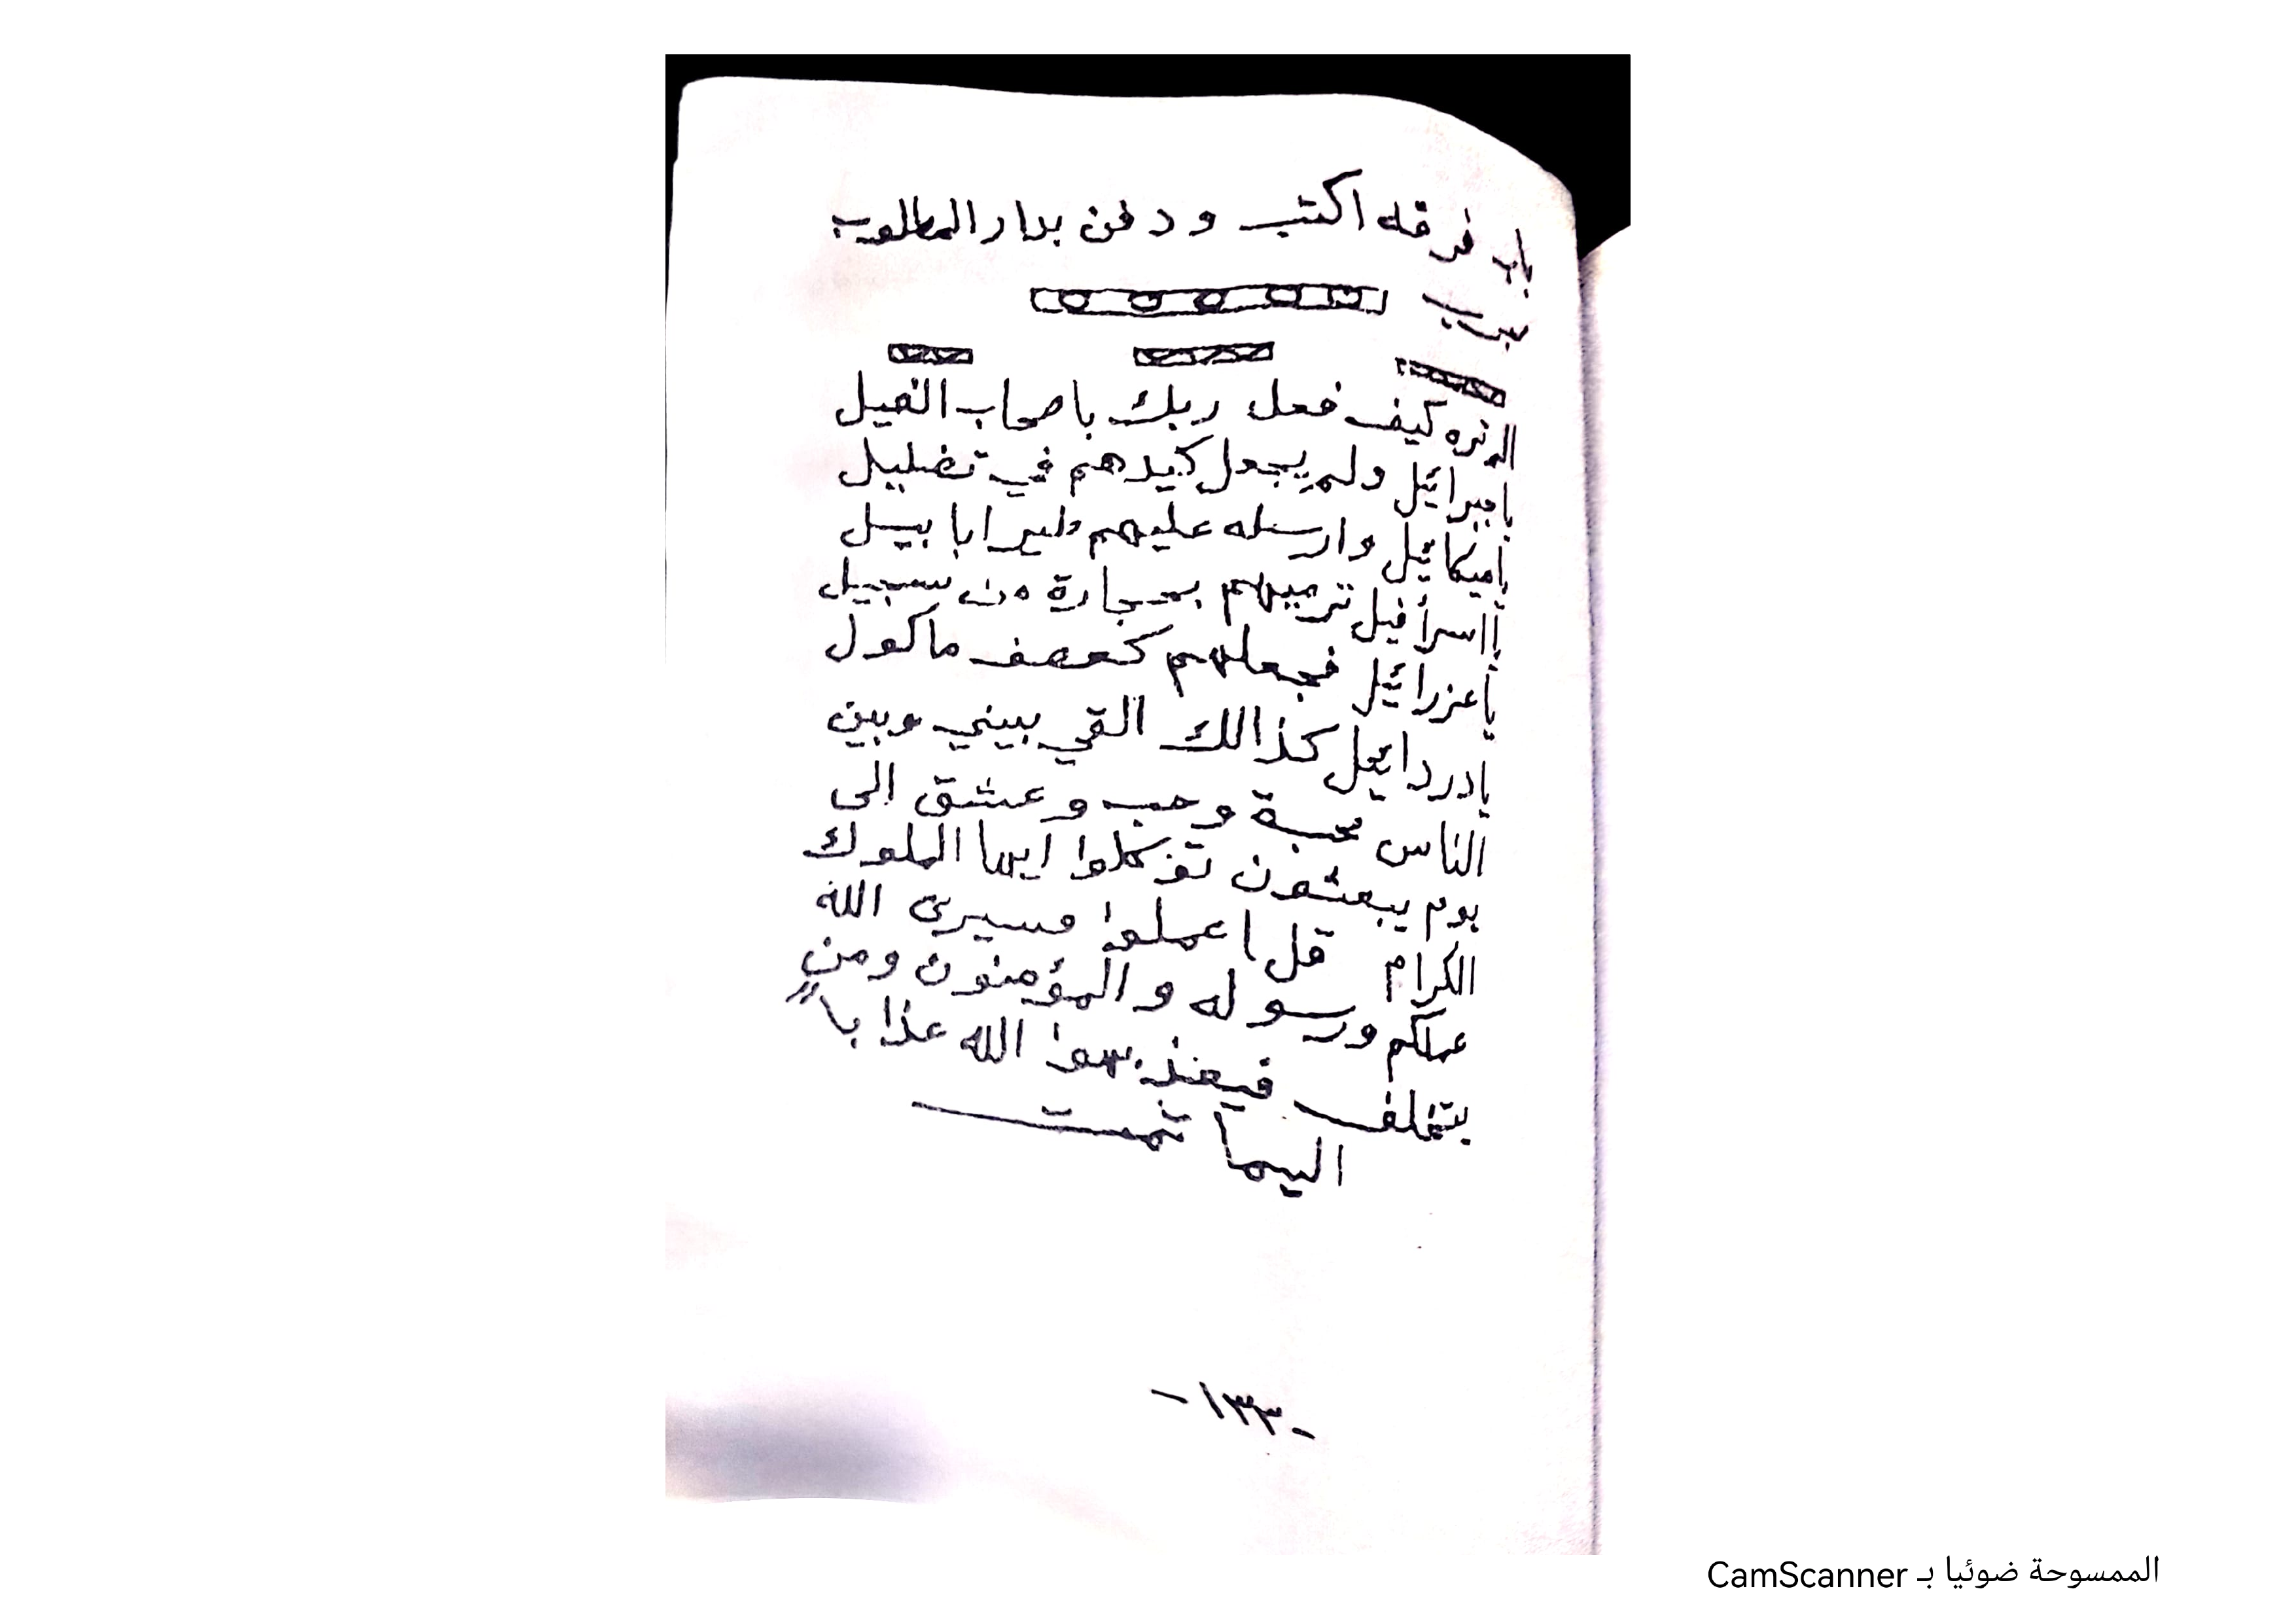 باب فرقه اكتب ودفن بدار المطلوب
الم تره كيف فعل ربك باصحاب الفيل
ياجبرائيل ولم يجعل كيدهم في تضليل
ياميكائيل وارسله عليهم طيرا ابا بيل
يااسرأفيل ترميهم بحجارة من سجيل
ياعزرائيل فجعلهم كعصف ماكول
يادردائيل كذالك القي بيني وبين
الناس محبة وحب وعشق الى
يوم يبعثون توكلوا ايها الملوك
الكرام قل اعملوا فسيرى الله
عملكم ورسوله والمؤمنون ومن
يتخلف فيعذبهوا الله عذابا
اليما تمت
-١٣٣-
الممسوحة ضوئيا بـ CamScanner